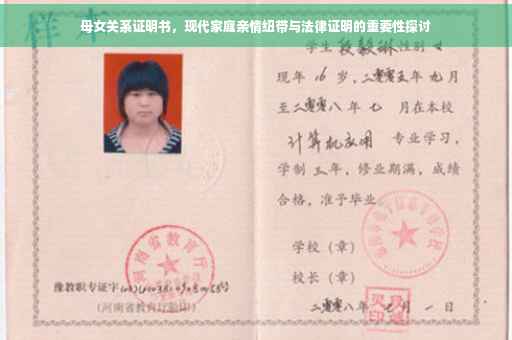 母女关系证明书，现代家庭亲情纽带与法律证明的重要性探讨
样本
学生段毅琳性别女
现年16岁，二零零五年九月
至二零零八年七月在本校
计算机应用专业学习，
学制三年，修业期满，成绩
合格，准予毕业
学校（章）
校长（章）
二零零八年七月一日
河南省教育厅
豫教职专证字
（河南省教育厅验印）